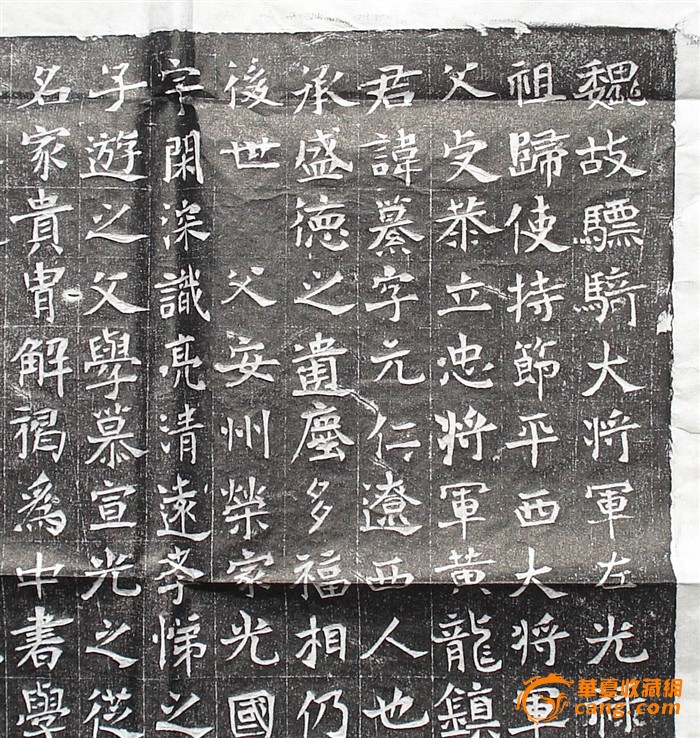 魏故驃騎大将軍左光祿
祖歸使持節平西大将軍
父恭立忠将軍黄龍鎮
君諱纂字元仁遼西人也
承盛德之遺塵多福相仍
後世 父安州榮家光國
字閑深識亮清遠孝悌之
子遊之父學慕宣光之從
名家貴胄解褐爲中書學
華夏收藏網
cang.com